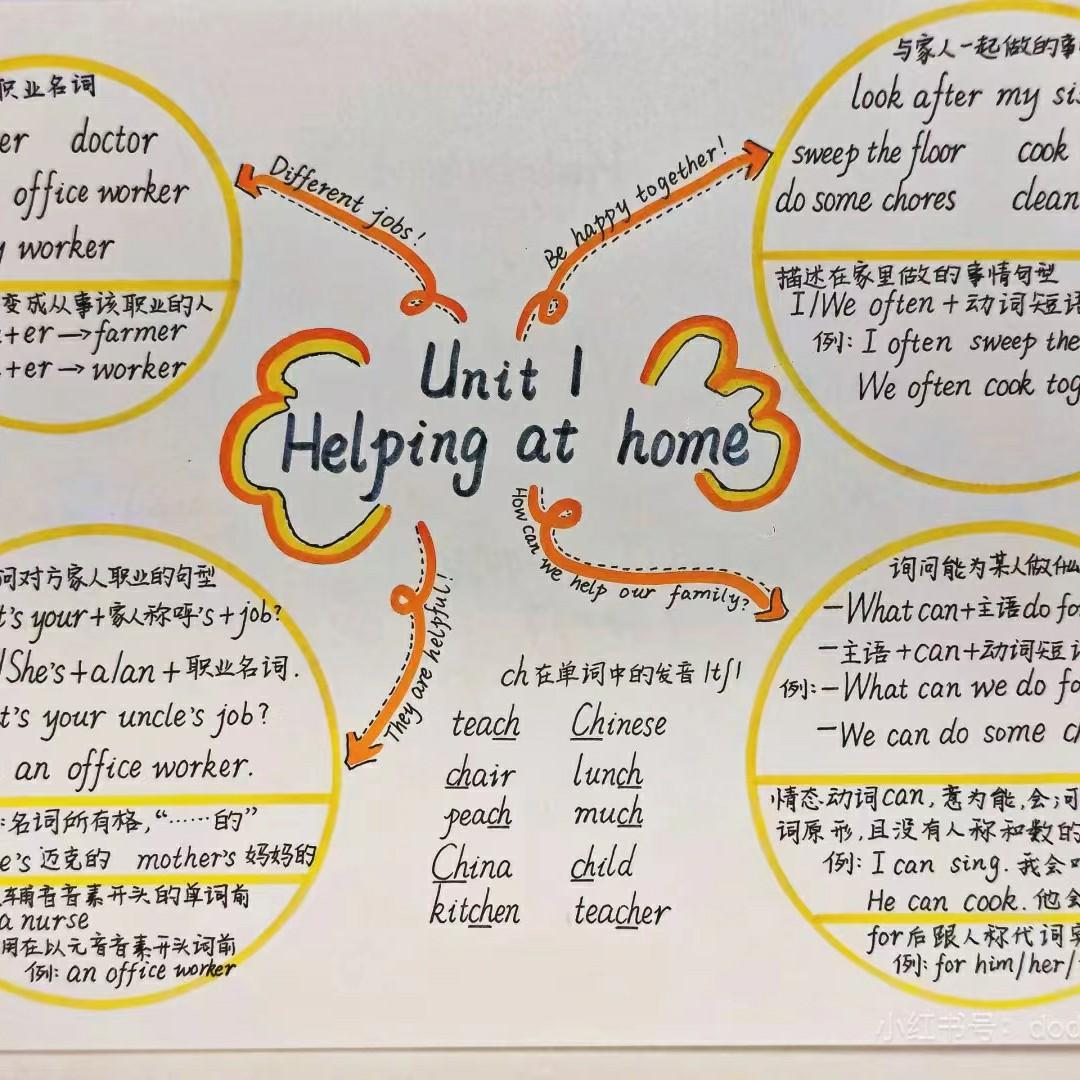 职业名词
er doctor
office worker
y worker
变成从事该职业的人
+er→farmer
+er→worker
Different jobs!
Be happy together!
与家人一起做的事
look after my sis
sweep the floor cook
do some chores clean
描述在家里做的事情句型
I/We often+动词短语
例: I often sweep the
We often cook tog
Unit 1
Helping at home
问对方家人职业的句型
t's your+家人称呼's+job?
/She's+a/an+职业名词.
t's your uncle's job?
an office worker.
:名词所有格,“……的”
e's 迈克的 mother's 妈妈的
辅音音素开头的单词前
a nurse
用在以元音音素开头词前
例: an office worker
They are helpful!
How can we help our family?
ch在单词中的发音/tʃ/
teach Chinese
chair lunch
peach much
China child
kitchen teacher
询问能为某人做什么
—What can+主语 do fo
—主语+can+动词短语
例:—What can we do fo
—We can do some ch
情态动词can,意为能,会;可
词原形,且没有人称和数的
例: I can sing. 我会
He can cook. 他会
for后跟人称代词宾
例: for him/her/
小红书号: dod